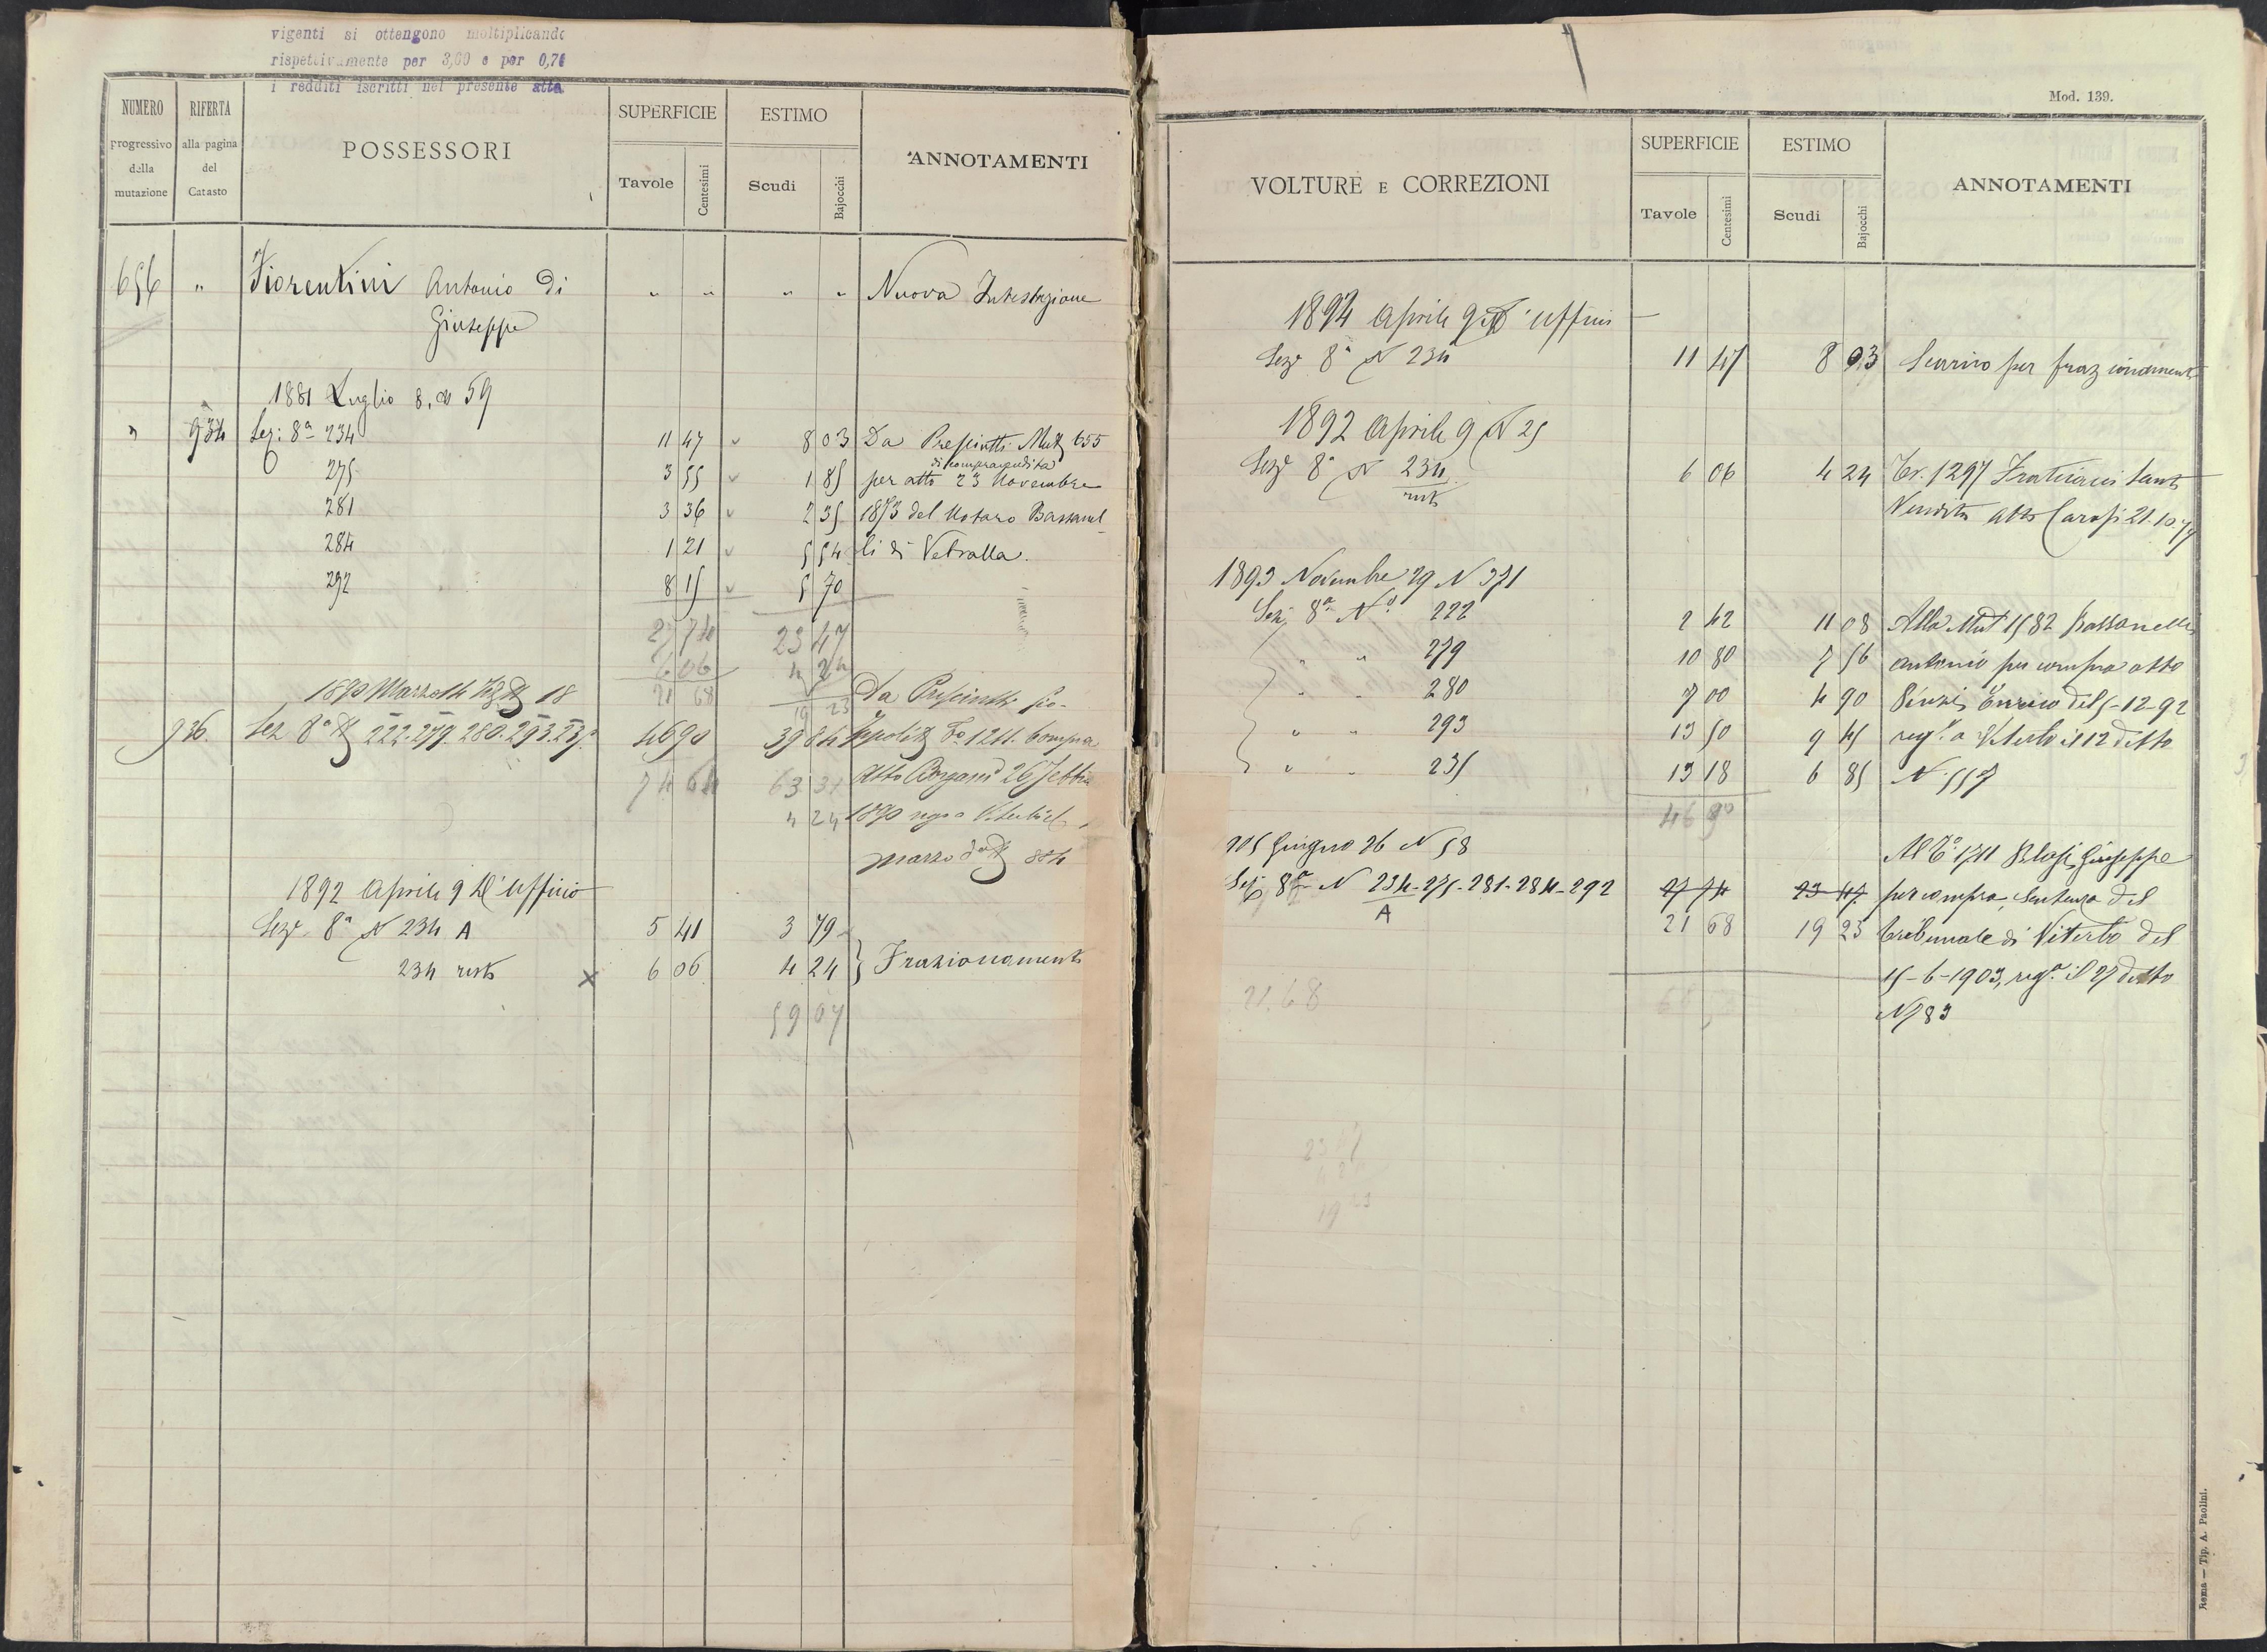 vigenti si ottengono moltiplicando
rispettivamente per 3,60 e per 0,76
i redditi iscritti nel presente atto
NUMERO progressivo della mutazione
RIFERTA alla pagina del Catasto
POSSESSORI
SUPERFICIE
Tavole Centesimi
ESTIMO
Scudi Bajocchi
ANNOTAMENTI
656 " Fiorentini Antonio di " " " " Nuova Intestazione
Giuseppe
1881 Luglio 8. N 59
" 934 Sez: 8a 234 11 47 8 03 Da Presciutti Mut 655
di compravendita
275 3 55 1 85 per atto 23 Novembre
281 3 36 2 35 1873 del Notaro Bassanel
284 1 21 5 54 li di Vetralla.
292 8 15 5 70
27 74 23 47
6 06 4 24
21 68 19 23
1890 Marzo 18
Da Presciutti
936. Sez 8a N 222. 279. 280. 293. 235 46 90 39 84 Ippolito 1211. Compra
74 64 63 31 Atto 26 Febbr
4 24 1890 reg a Viterbo
marzo 884
1892 Aprile 9 D'Ufficio
Seze 8a N 234 A 5 41 3 79
234 resto x 6 06 4 24 Frazionamento
59 07
Mod. 139.
VOLTURE E CORREZIONI
SUPERFICIE
Tavole Centesimi
ESTIMO
Scudi Bajocchi
ANNOTAMENTI
1892 Aprile 9 D'Ufficio
Seze 8a N 234 11 47 8 03 Scarico per frazionamento
1892 Aprile 9 N 25
Seze 8a N 234 6 06 4 24 Tr. 1297 Santi
resto
Vendita atto Carosi 21.10.77
1893 Novembre 29 N 371
Sez. 8a No 222 2 42 11 08 Alla Mut 1582 Bassanelli
" " 279 10 80 7 56 Antonio per compra atto
" " 280 7 00 4 90 Enrico del 5-12-92
" " 293 13 50 9 45 rega a Viterbo il 12 detto
" " 235 13 18 6 85 N 557
46 90
905 Giugno 26 N 58
Al To 1711 Blasi Giuseppe
Sez 8a N 234-275-281-284-292 27 74 23 47 per compra, Sentenza del
A
21 68 19 23 tribunale di Viterbo del
15-6-1903, rega il 27 detto
N 83
21.68
19 23
Roma — Tip. A. Paolini.